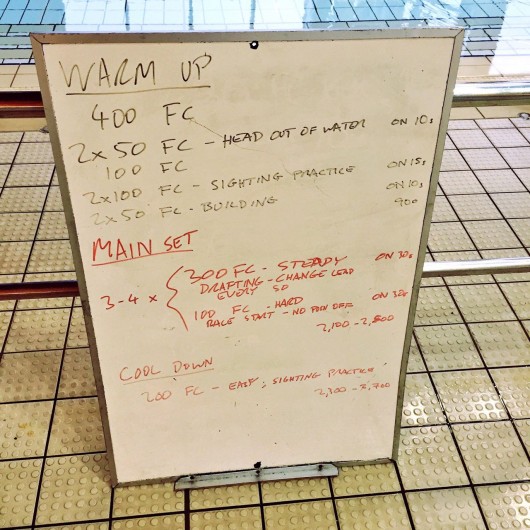 WARM UP
400 FC
2x50 FC - HEAD OUT OF WATER ON 10s
100 FC
2x100 FC - SIGHTING PRACTICE ON 15s
2x50 FC - BUILDING ON 10s
900
MAIN SET
3-4 x { 300 FC - STEADY ON 30s
DRAFTING - CHANGE LEAD
EVERY 50
100 FC - HARD ON 30s
RACE START - NO PUSH OFF
2,100 - 2,500
COOL DOWN
200 FC - EASY; SIGHTING PRACTICE
2,300 - 2,700